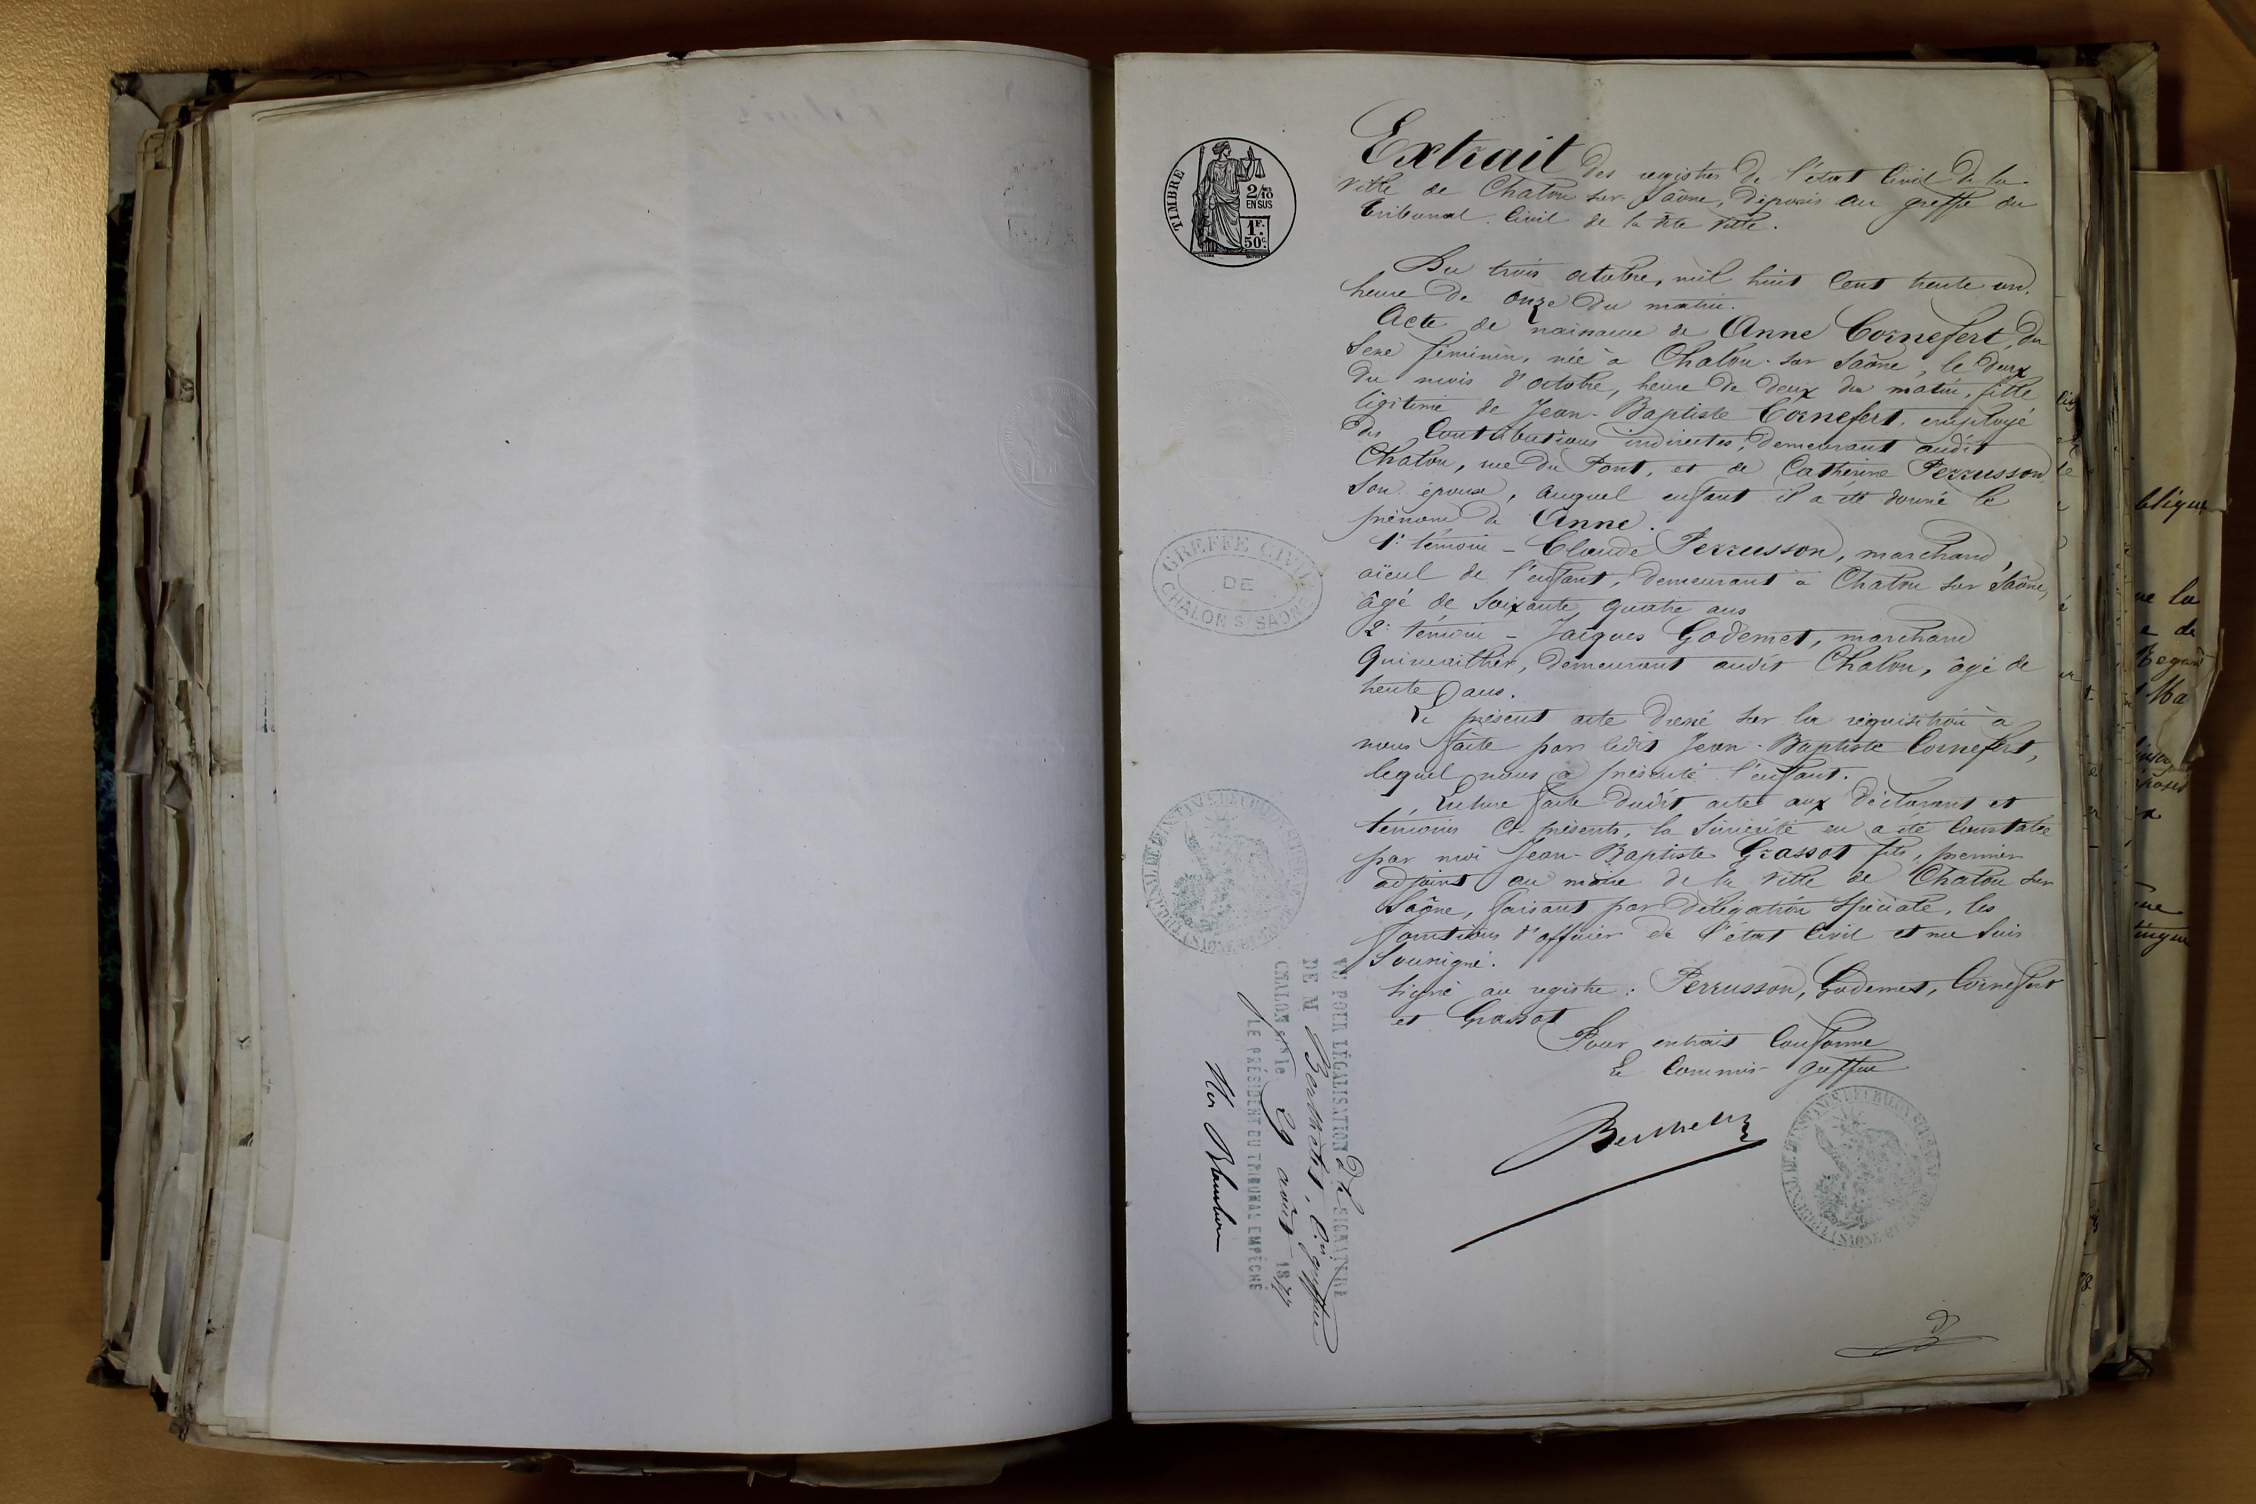 TIMBRE
2/10
EN SUS
1F.
50c.
Extrait des registres de l'état Civil de la
ville de Chalon sur Saône, déposés au greffe du
Tribunal Civil de la dite ville.
Du trois octobre, mil huit cent trente un,
heure de onze du matin.
Acte de naissance de Anne Cornefert, du
sexe féminin, née à Chalon-sur Saône, le deux
du mois d'octobre, heure de deux du matin, fille
légitime de Jean-Baptiste Cornefert, employé
des Contributions indirectes, demeurant audit
Chalon, rue du Pont, et de Catherine Perrusson
son épouse, auquel enfant il a été donné le
prénom de Anne.
1er témoin - Claude Perrusson, marchand,
aïeul de l'enfant, demeurant à Chalon sur Saône,
âgé de soixante quatre ans
2e témoin - Jacques Godemet, marchand
quincaillier, demeurant audit Chalon, âgé de
trente ans.
Le présent acte dressé sur la réquisition à
nous faite par ledit Jean-Baptiste Cornefert,
lequel nous a présenté l'enfant.
Lecture faite dudit acte aux déclarant et
témoins ci-présents, la sincérité en a été constatée
par moi Jean-Baptiste Grassot fils, premier
adjoint au maire de la ville de Chalon sur
Saône, faisant par délégation spéciale, les
fonctions d'officier de l'état Civil et me suis
soussigné.
Signé au registre : Perrusson, Godemet, Cornefert
et Grassot
Pour extrait conforme
Le Commis-greffier
GREFFE CIVIL
DE
CHALON S/ SAONE
VU POUR LÉGALISATION de la SIGNATURE
DE M Berthelet, Cis greffier
CHALON s/s le 29 août 1877
LE PRÉSIDENT DU TRIBUNAL EMPÊCHÉ